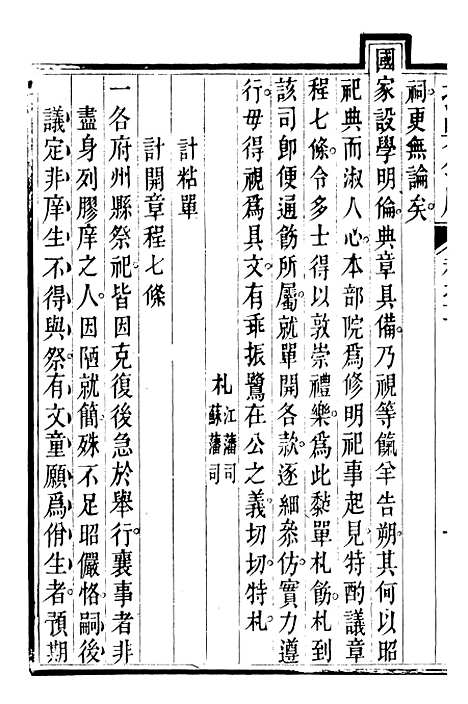 祠更無論矣。
國家設學明倫典章具備。乃視等餼羊告朔。其何以昭
祀典而淑人心。本部院爲修明祀事起見。特酌議章
程七條。令多士得以敦崇禮樂。爲此黏單札飭。札到
該司卽便通飭所屬。就單開各款。逐細叅仿。實力遵
行。毋得視爲具文。有乖振鷺在公之義。切切。特札。
札江藩司蘇藩司
計粘單
計開章程七條
一各府州縣祭祀。皆因克復後急於舉行。襄事者非
盡身列膠庠之人。因陋就簡。殊不足昭儼恪。嗣後
議定非庠生不得與祭。有文童願爲佾生者。預期